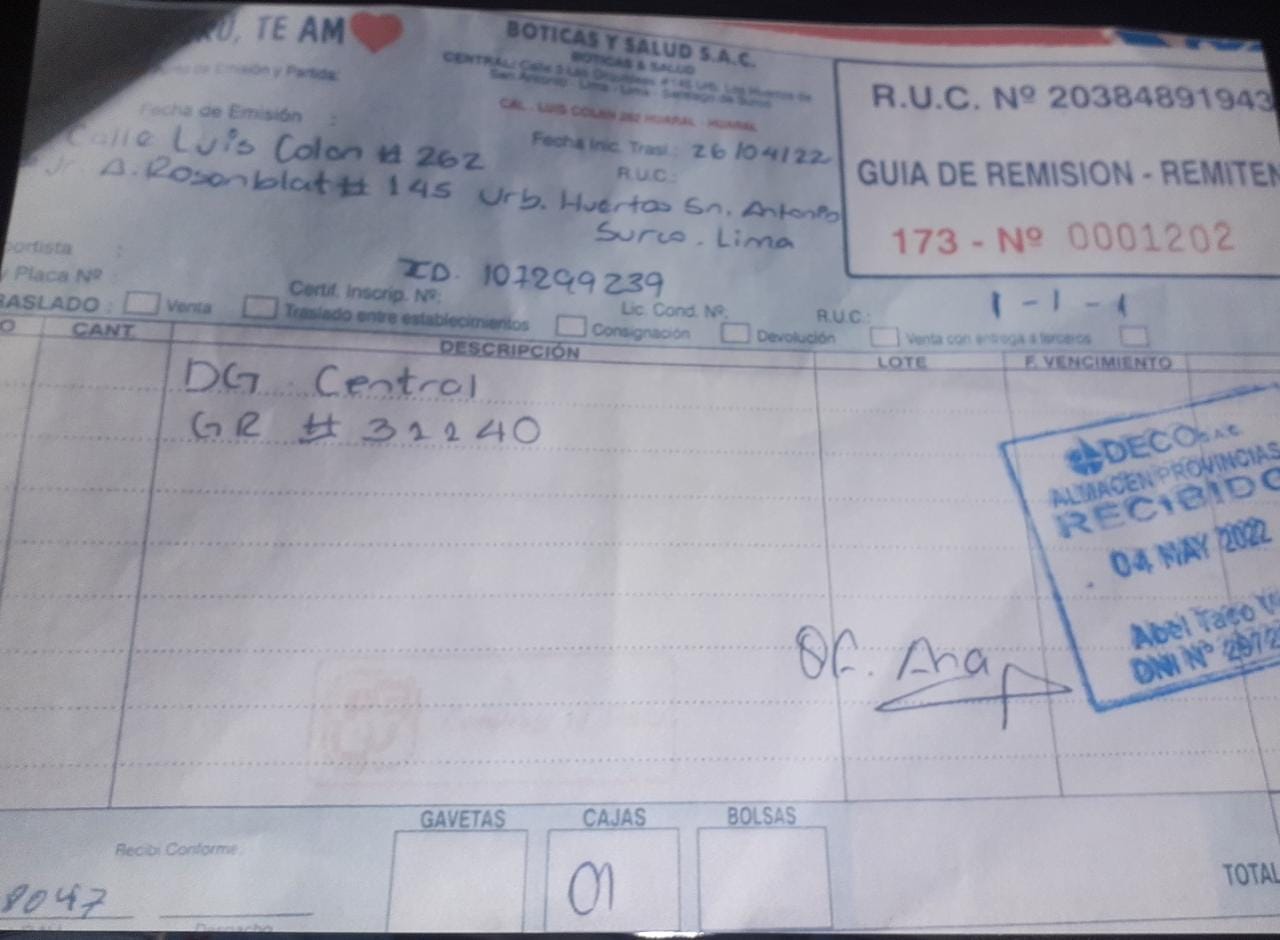 TE AM
BOTICAS Y SALUD S.A.C.
BOTICAS & SALUD
CENTRAL: Calle
San Antonio - Lima - Lima - Santiago de Surco
CAL. LUIS COLAN 262 HUARAL - HUARAL
R.U.C. Nº 20384891943
GUIA DE REMISION - REMITEN
173 - Nº 0001202
de Emisión y Partida:
Fecha de Emisión :
Fecha Inic. Trasl.: 26/04/22
Calle Luis Colan # 262
R.U.C.:
Jr. A. Rosenblat # 145 Urb. Huertos Sn. Antonio
Surco. Lima
portista :
y Placa Nº
ID. 107299239
Certif. Inscrip. Nº:
Lic. Cond. Nº:
R.U.C.:
1 - 1 - 1
RASLADO : Venta Traslado entre establecimientos Consignación Devolución Venta con entrega a terceros
O CANT. DESCRIPCIÓN LOTE F. VENCIMIENTO
DG Central
GR # 31240
DECO S.A.C.
ALMACEN PROVINCIAS
RECIBIDO
04 MAY 2022
Abel Taco
DNI Nº
Ana
GAVETAS CAJAS BOLSAS
01
Recibi Conforme
8047
Despacho
TOTAL